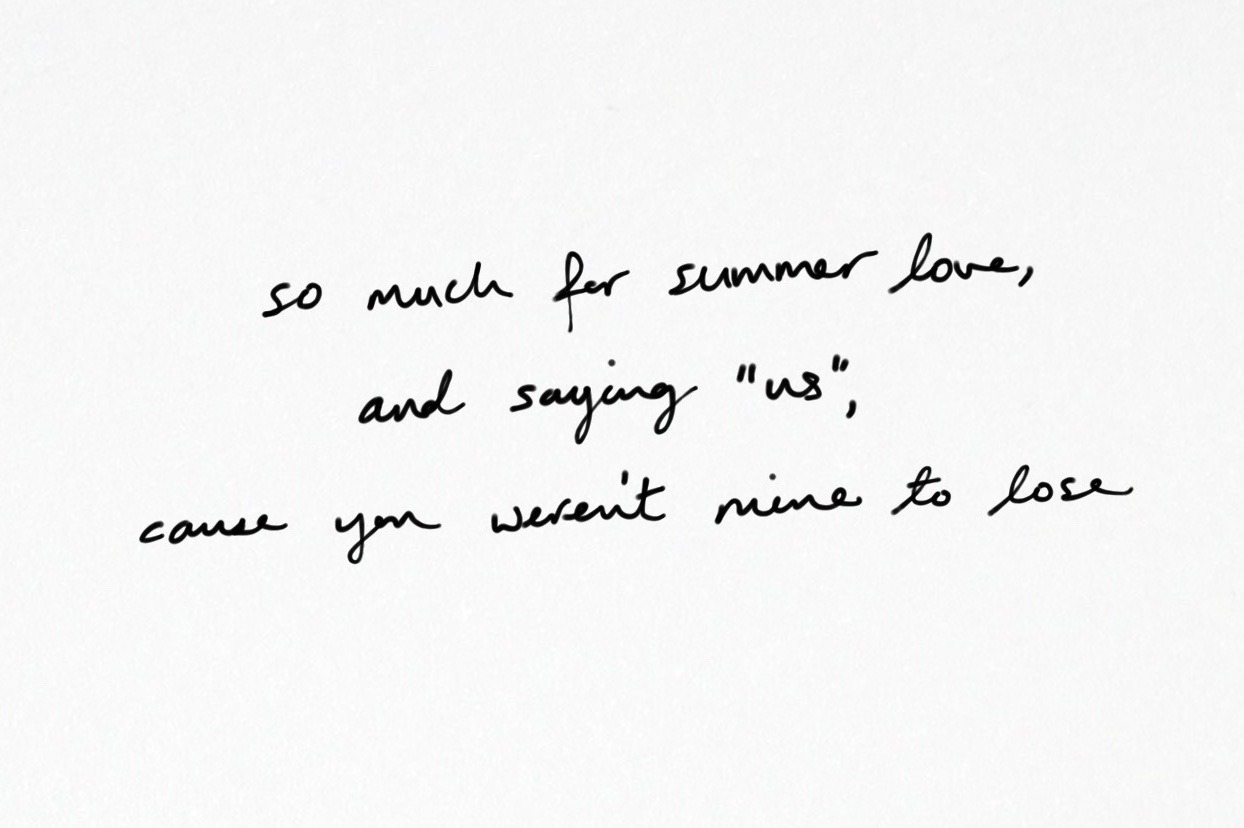 so much for summer love,
and saying "us",
cause you weren't mine to lose